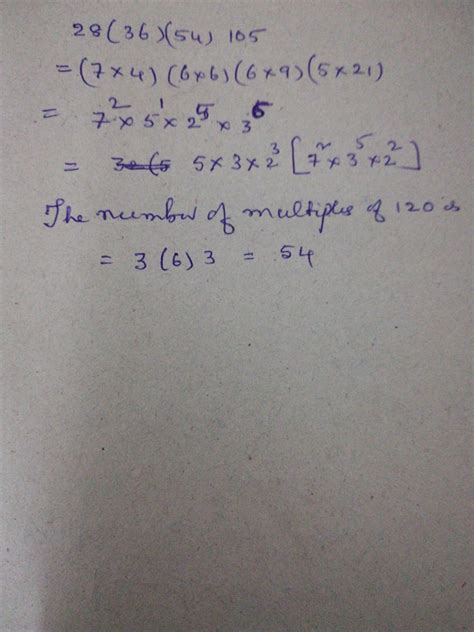 28(36)(54) 105
= (7×4) (6×6)(6×9)(5×21)
= 7² × 5¹ × 2⁵ × 3⁶
= 5×3×2³ [7²×3⁵×2²]
The number of multiples of 120 is
= 3(6)3 = 54